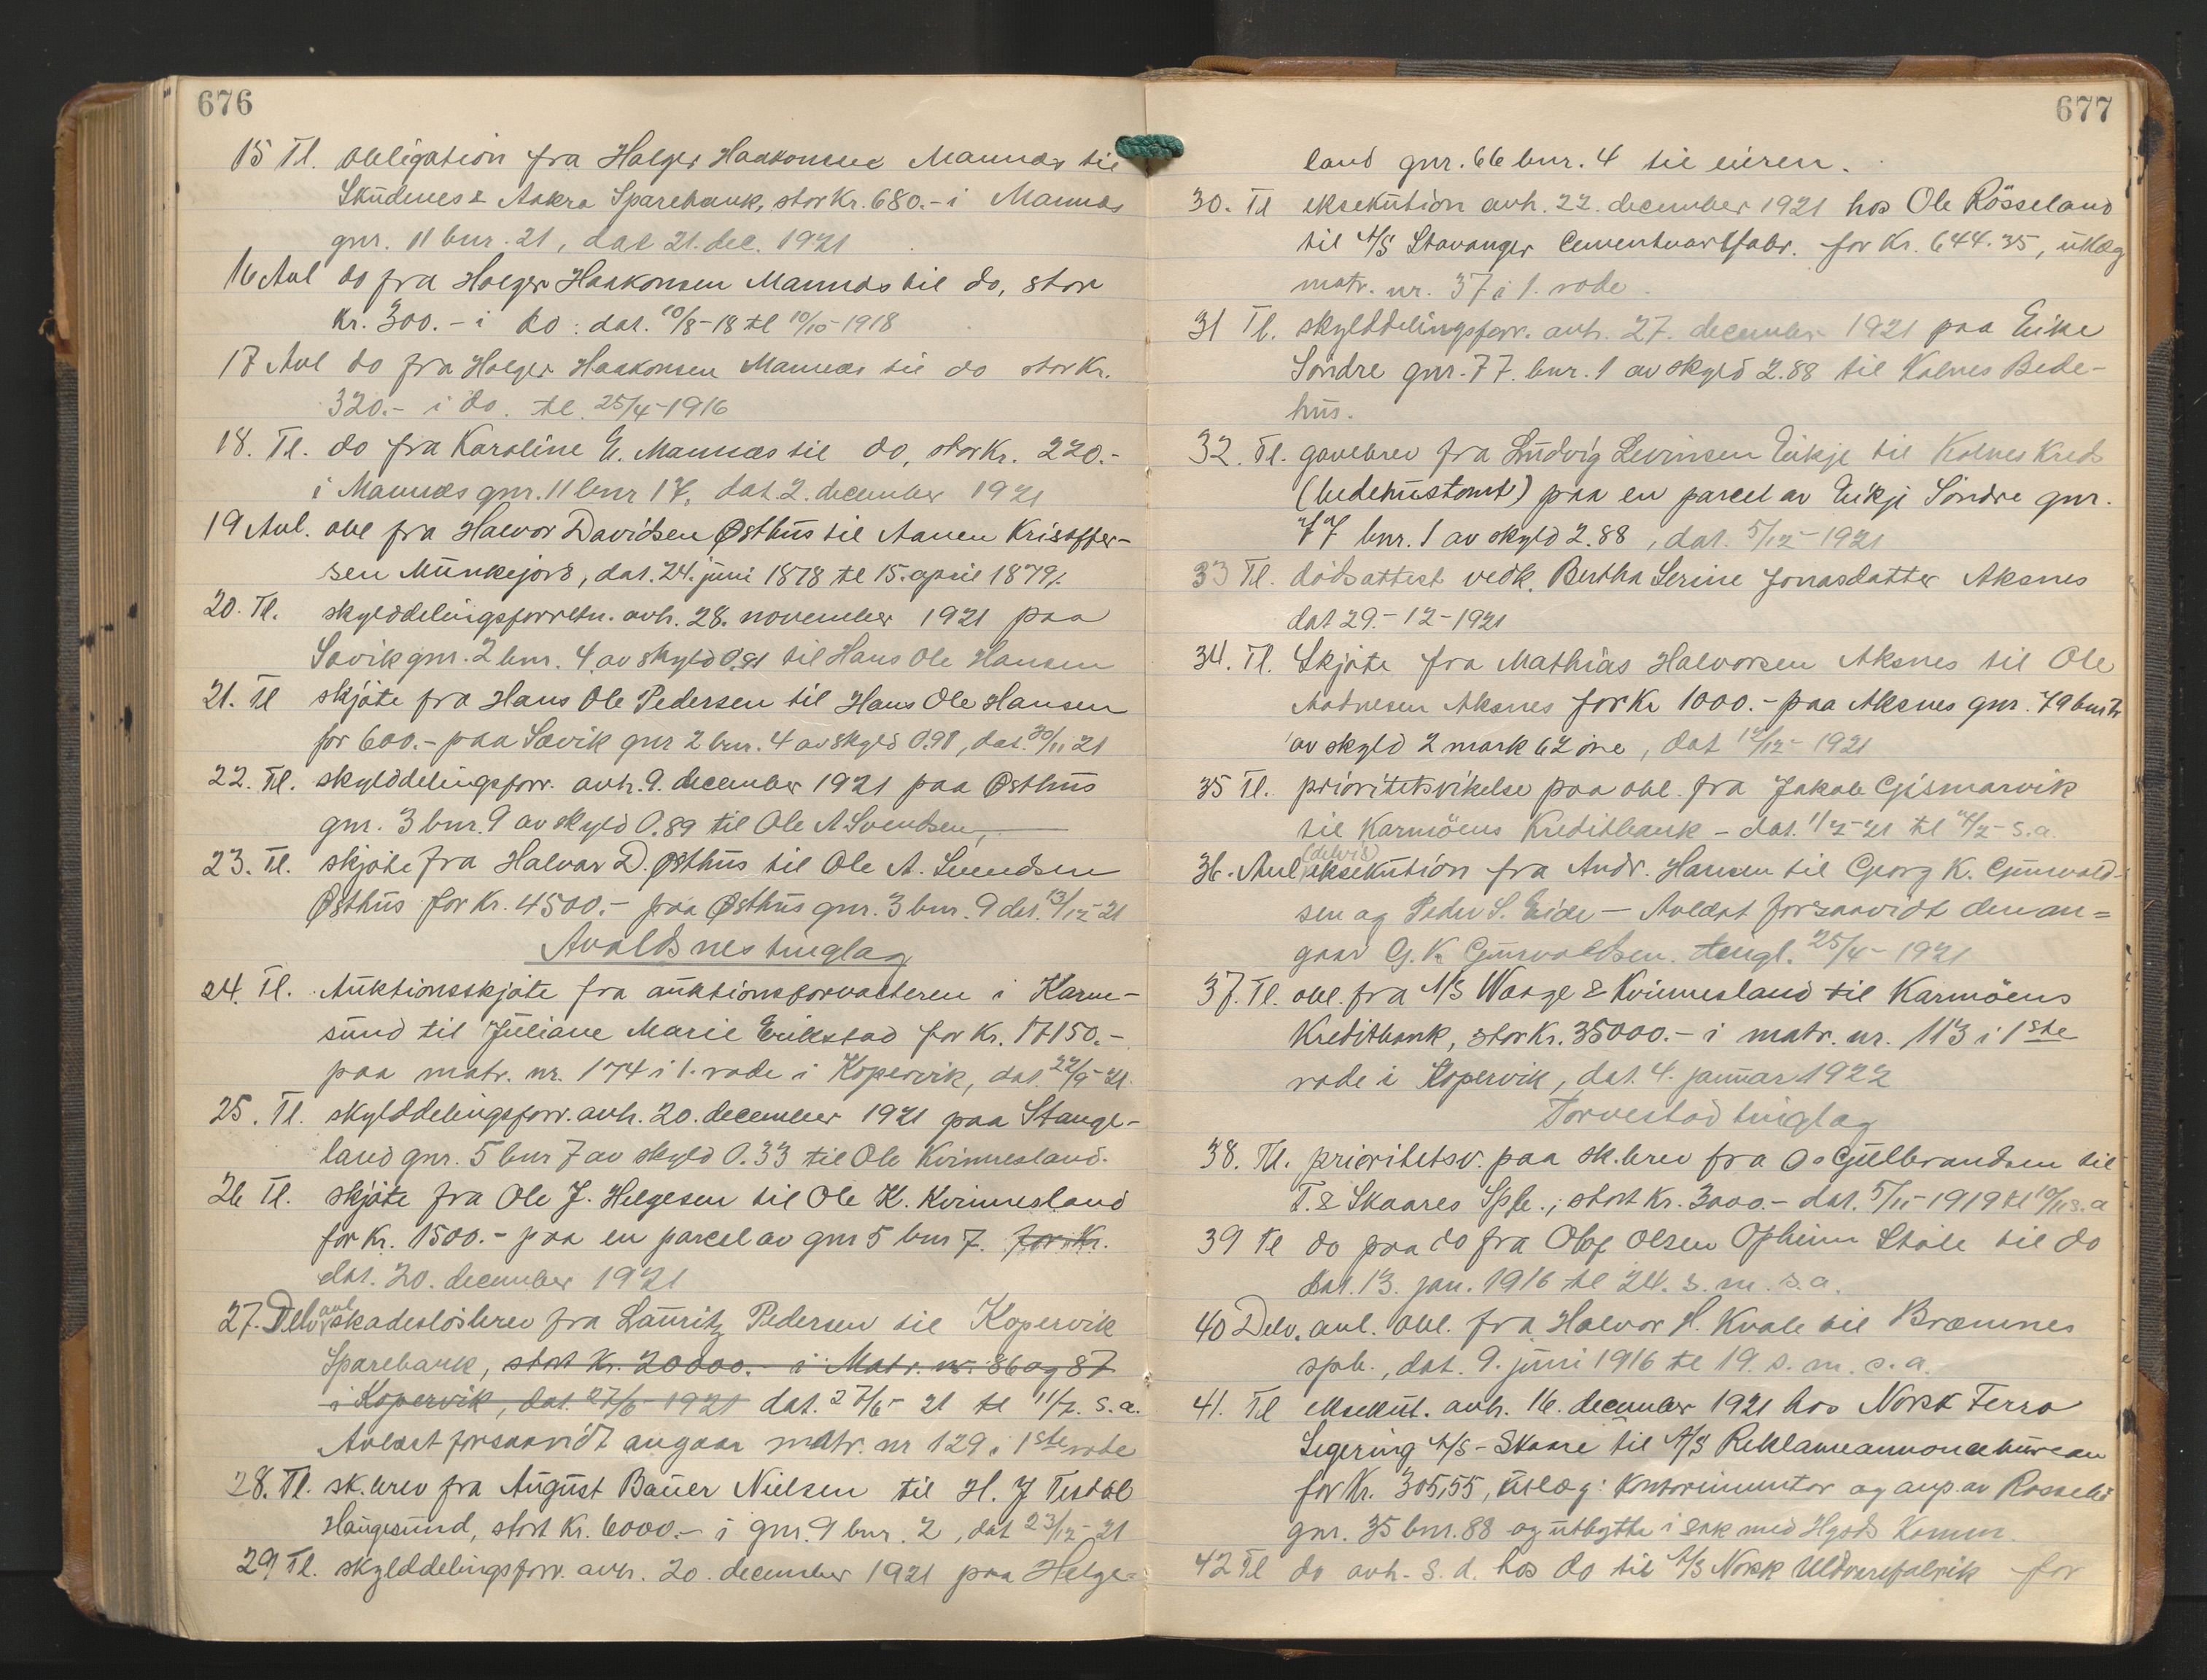 676
15 Tl. obligation fra Holger Haakonsen Mannes til
Skudenes & Aakra Sparebank, stor Kr. 680.- i Mannes
gnr. 11 bnr. 21, dat 21. dec. 1921
16 Avl do fra Holger Haakonsen Mannes til do, stor
kr. 300.- i do: dat. 10/8-18 tl 10/10-1918
17 Avl do fra Holger Haakonsen Mannes til do stor Kr.
320.- i do. tl. 25/4-1916
18. Tl. do fra Karoline E. Mannes til do, stor Kr. 220.-
i Mannes gnr. 11 bnr 17, dat. 2. december 1921
19 Avl. obl fra Halvor Davidsen Østhus til Aanen Kristoffer-
sen Munkejord, dat. 24. juni 1878 tl 15. april 1879.
20. Tl. skylddelingsforretn. avh. 28. november 1921 paa
Sævik gnr. 2 bnr. 4 av skyld 0.81 til Hans Ole Hansen
21. Tl skjöte fra Hans Ole Pedersen til Hans Ole Hansen
for 600.- paa Sævik gnr 2 bnr. 4 av skyld 0.91, dat. 30/11 21
22. Tl. skylddelingsforr. avh. 9. december 1921 paa Østhus
gnr. 3 bnr. 9 av skyld 0.89 til Ole A. Svendsen,
23. Tl. skjöte fra Halvar D. Østhus til Ole A. Svendsen
Østhus for Kr. 4500.- paa Østhus gnr. 3 bnr. 9 dat. 13/12-21
Avaldsnes tinglag
24. Tl. Auktionsskjöte fra auktionsforvalteren i Karm-
sund til Juliane Marie Erikstad for Kr. 17150.-
paa matr. nr. 174 i 1. rode i Kopervik, dat. 22/9-21.
25. Tl. skylddelingsforr. avh. 20. december 1921 paa Stange-
land gnr. 5 bnr 7 av skyld 0.33 til Ole Kvinnesland.
26 Tl. skjöte fra Ole J. Helgesen til Ole K. Kvinnesland
for Kr. 1500.- paa en parcel av gnr 5 bnr 7. for Kr.
dat. 20. december 1921
27. Delv avl skadeslösbrev fra Lauritz Pedersen til Kopervik
Sparebank, stort Kr. 20000.- i Matr. nr. 86 og 87
i Kopervik, dat. 27/6 1921 dat. 27/6- 21 tl 11/7. s.a.
Avlæst forsaavidt angaar matr. nr 129 i 1ste rode
28. Tl. sk.brev fra August Bauer Nielsen til H. J Tesdal
Haugesund, stort Kr. 6000.- i gnr. 9 bnr. 2, dat 23/12-21
29 Tl. skylddelingsforr. avh. 20. december 1921 paa Helge-
677
land gnr. 66 bnr. 4 til eieren.
30. Tl eksekution avh. 22. december 1921 hos Ole Rösseland
til A/S Stavanger Cementvarefabr. for Kr. 644.35, utlæg
matr. nr. 37 i 1. rode.
31 Tl. skylddelingsforr. avh. 27. december 1921 paa Eike
Söndre gnr. 77. bnr. 1 av skyld 2.88 til Kolnes Bede-
hus.
32. Tl. gavebrev fra Ludvig Levinsen Eikje til Kolnes Kreds
(bedehustomt) paa en parcel av Eikje Söndre gnr.
77 bnr. 1 av skyld 2.88, dat. 5/12-1921
33 Tl. dödsattest vedk. Bertha Serine Jonasdatter Aksnes
dat 29.-12-1921
34. Tl. Skjöte fra Mathias Halvorsen Aksnes til Ole
Aadnesen Aksnes for Kr 1000.- paa Aksnes gnr. 79 bnr
av skyld 2 mark 62 öre, dat 12/12-1921
35 Tl. prioritetsvikelse paa obl. fra Jakob Gismarvik
til Karmöens Kreditbank - dat. 1/2-21 tl 4/2- s.a.
36. Avl (delvis) eksekution fra Andr. Hansen til Georg K. Gunvald-
sen og Peder S. Eide - Avlæst forsaavidt den an=
gaar G. K. Gunvaldsen. tingl. 25/4-1921
37. Tl. obl. fra A/S Waage & Kvinnesland til Karmöens
Kreditbank, stor Kr. 35000.- i matr. nr. 113 i 1ste
rode i Kopervik, dat. 4. januar 1922
Torvestad tinglag
38. Tl. prioritetsv. paa sk.brev fra O. Gulbrandsen til
T. & Skaares Spb., stort Kr. 3000.- dat. 5/11-1919 tl 10/11 s.a
39 Tl do paa do fra Olaf Olsen Opheim Ståle til do
dat. 13. jan. 1916 tl 24. s. m. s. a.
40 Delv. avl. obl. fra Halvor H. Kvale til Bremnes
spb., dat. 9. juni 1916 tl 19. s. m. s. a.
41. Tl eksekut. avh. 16. december 1921 hos Norsk Ferro
Legering A/S - Skaare til A/S Reklameannoncebureau
for Kr. 305,55, utlæg: Kontorinventar og anp. av Rossebö
gnr. 35 bnr. 88 og utbytte i sak med Hgsds Komm.
42 Tl do avh. s. d. hos do til A/S Norsk Uldvarefabrik for